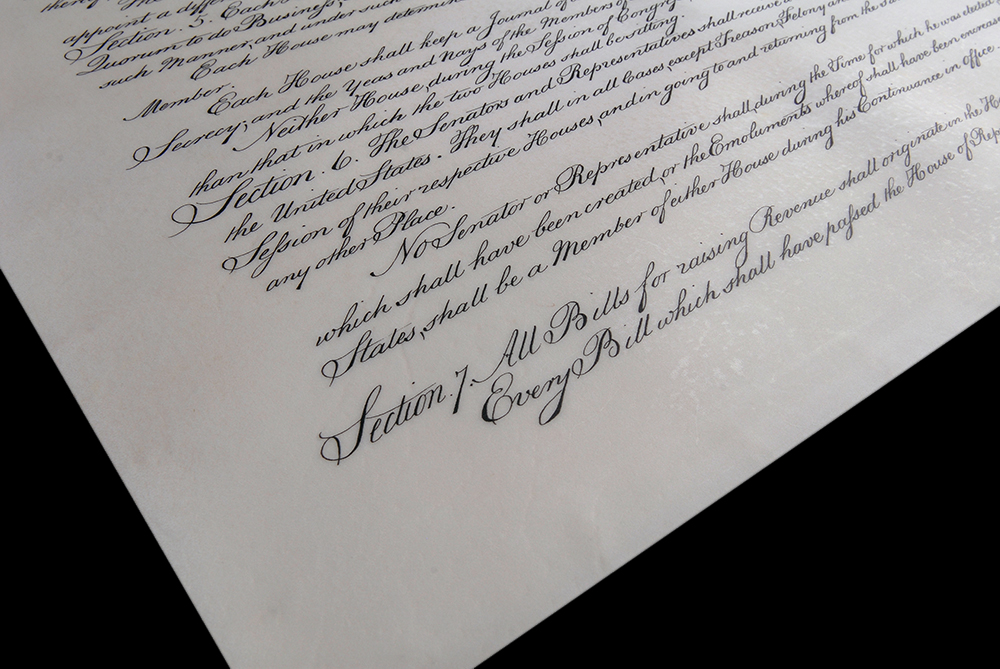 appoint a diffe
Section. 5. Each
Quorum to do Business,
such Manner, and under such
Each House may determin
Member.
Each House shall keep a Journal of
Secrecy; and the Yeas and Nays of the Members of
Neither House, during the Session of Congr
than that in which the two Houses shall be sitting.
Section. 6. The Senators and Representatives shall receive
the United States. They shall in all Cases, except Treason, Felony an
Session of their respective Houses, and in going to and returning from the sa
any other Place.
No Senator or Representative shall, during the Time for which he was elected
which shall have been created, or the Emoluments whereof shall have been encreas
States, shall be a Member of either House during his Continuance in Office.
Section. 7. All Bills for raising Revenue shall originate in the Ho
Every Bill which shall have passed the House of Rep